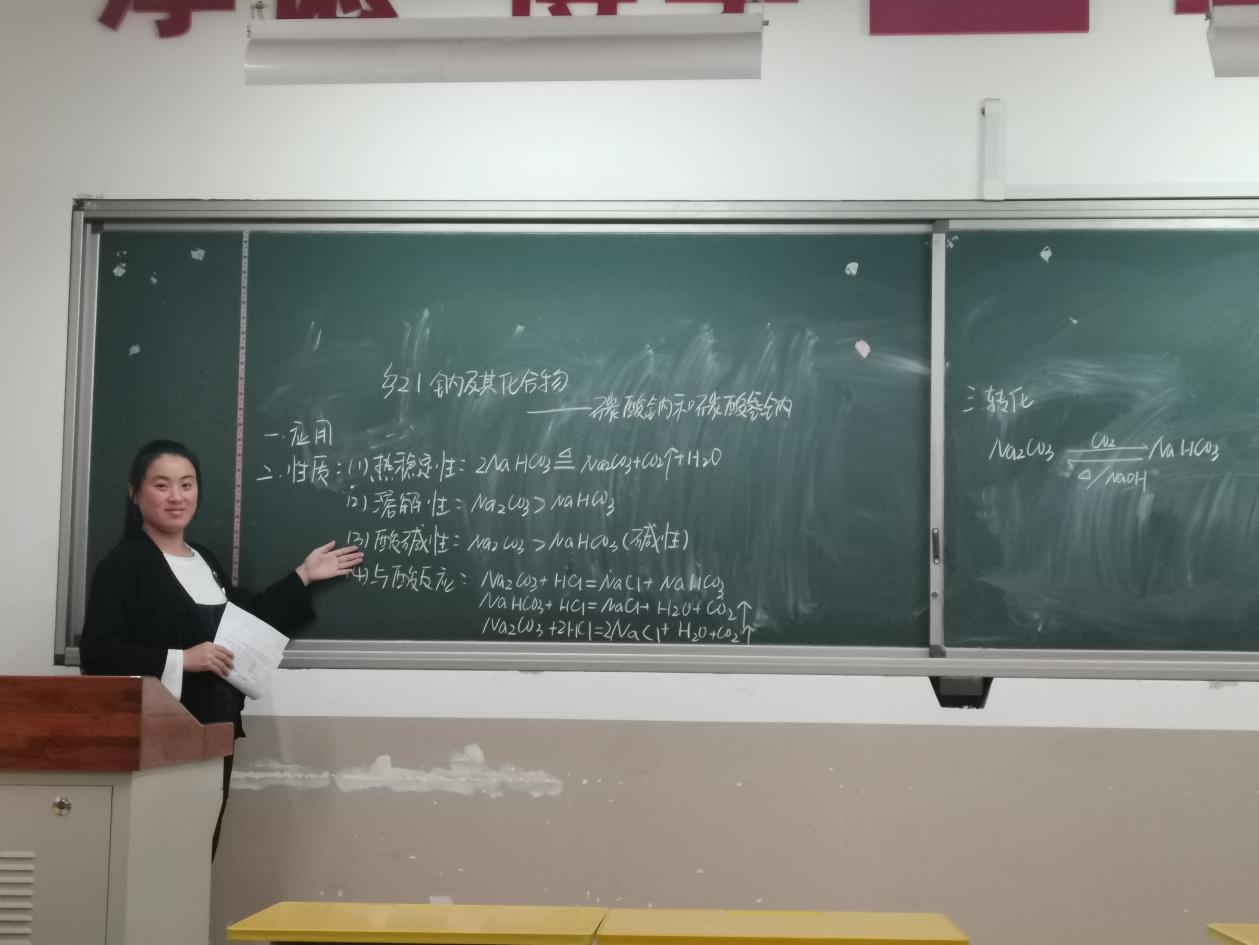 厚德 博学
§2.1 钠及其化合物
——碳酸钠和碳酸氢钠
一.应用
二.性质:(1)热稳定性: 2NaHCO3 ≜ Na2CO3+CO2↑+H2O
(2)溶解性: Na2CO3 > NaHCO3
(3)酸碱性: Na2CO3 > NaHCO3(碱性)
(4)与酸反应: Na2CO3+HCl=NaCl+NaHCO3
NaHCO3+HCl=NaCl+H2O+CO2↑
Na2CO3+2HCl=2NaCl+H2O+CO2↑
三.转化
CO2
Na2CO3 NaHCO3
△/NaOH